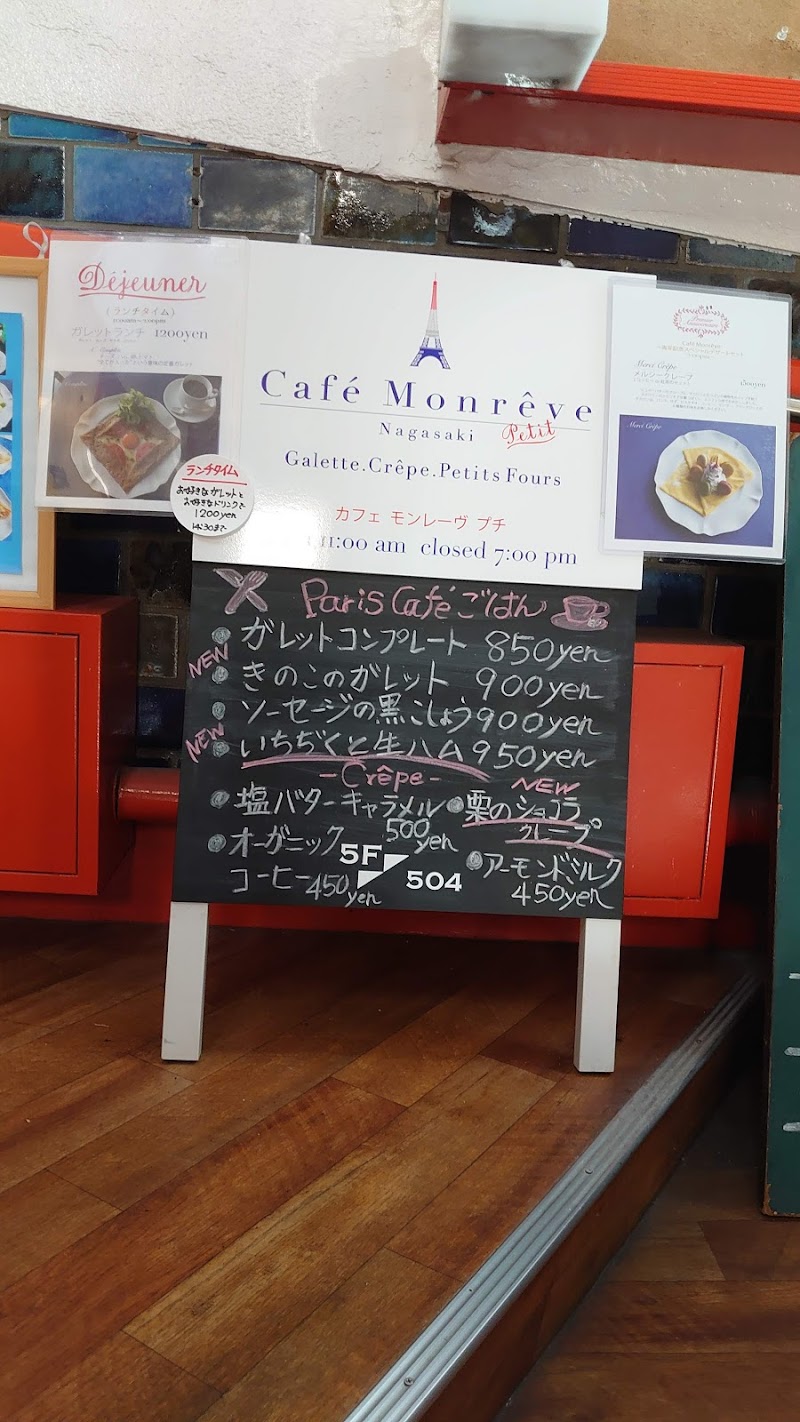 Déjeuner
(ランチタイム)
ガレットランチ 1200yen
ランチタイム
お好きなガレットと
お好きなドリンクで
1200yen
14:30まで
Café Monrêve
Nagasaki Petit
Galette.Crêpe.Petits Fours
カフェ モンレーヴ プチ
11:00 am closed 7:00 pm
Café Monrêve
Merci Crêpe
メルシークレープ
Merci Crêpe
Paris Café ごはん
ガレットコンプレート 850yen
NEW
きのこのガレット 900yen
ソーセージの黒こしょう 900yen
NEW
いちぢくと生ハム 950yen
-Crêpe-
塩バターキャラメル
500yen
NEW
栗のショコラ
クレープ
オーガニック
コーヒー 450yen
アーモンドミルク
450yen
5F
504